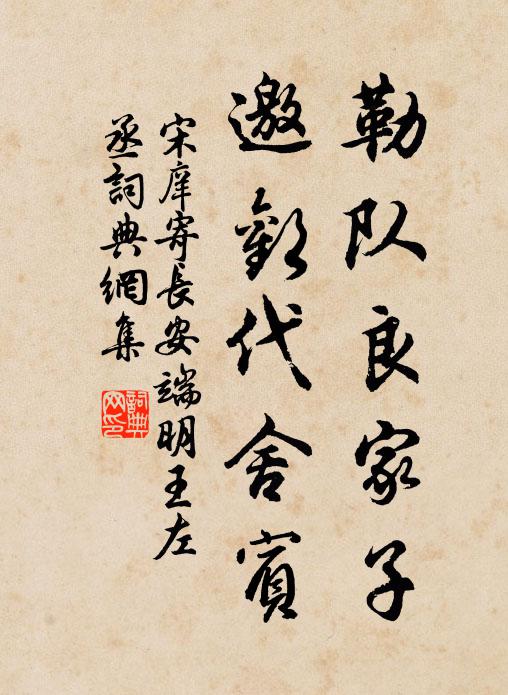 勒队良家子
邀欢代舍宾
宋庠寄长安端明王左
丞詞典網集
詞典
网印